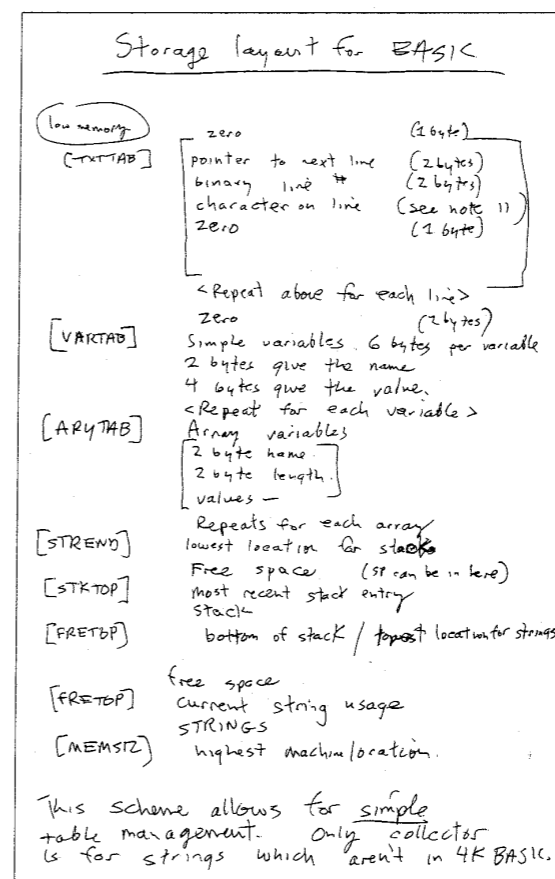 Storage layout for BASIC
low memory
zero (1 byte)
[TXTTAB]
pointer to next line (2 bytes)
binary line # (2 bytes)
character on line (see note 1))
zero (1 byte)
<Repeat above for each line>
zero (2 bytes)
[VARTAB] Simple variables. 6 bytes per variable
2 bytes give the name
4 bytes give the value.
<Repeat for each variable>
[ARYTAB] Array variables
2 byte name.
2 byte length.
values —
Repeats for each array
[STREND] lowest location for stack
Free space (SP can be in here)
[STKTOP] most recent stack entry
stack
[FRETOP] bottom of stack / location for strings
free space
[FRETOP] current string usage
STRINGS
[MEMSIZ] highest machine location.
This scheme allows for simple
table management. Only collector
is for strings which aren't in 4K BASIC.